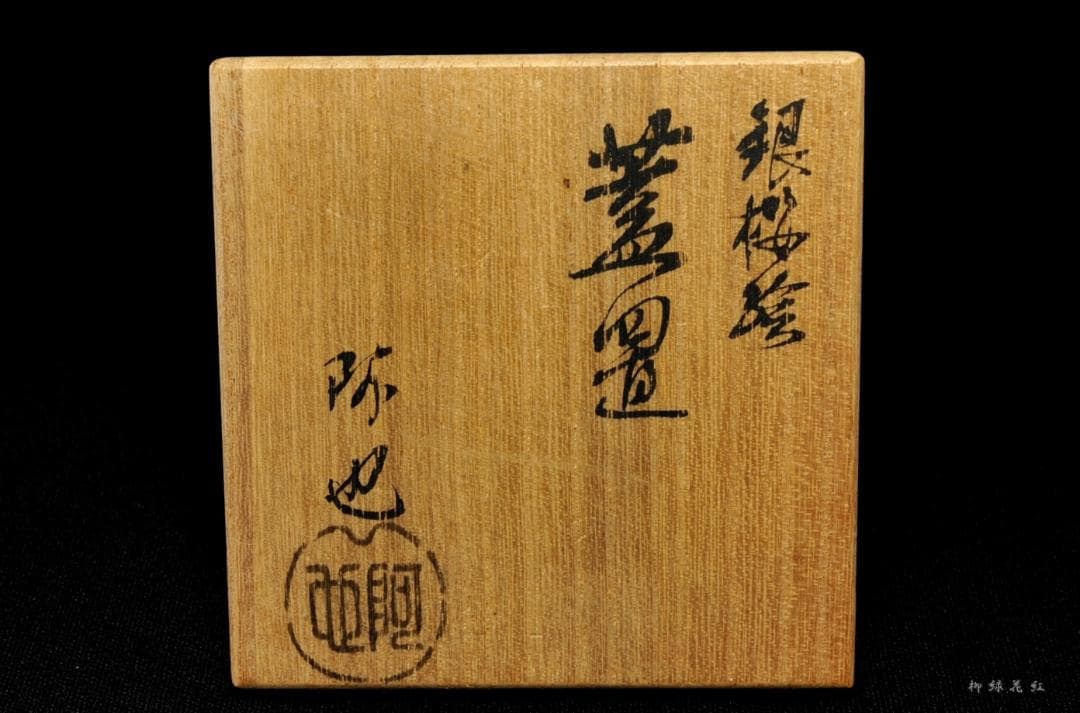 銀桜絵
蓋置
阿也
阿也
柳緑花紅